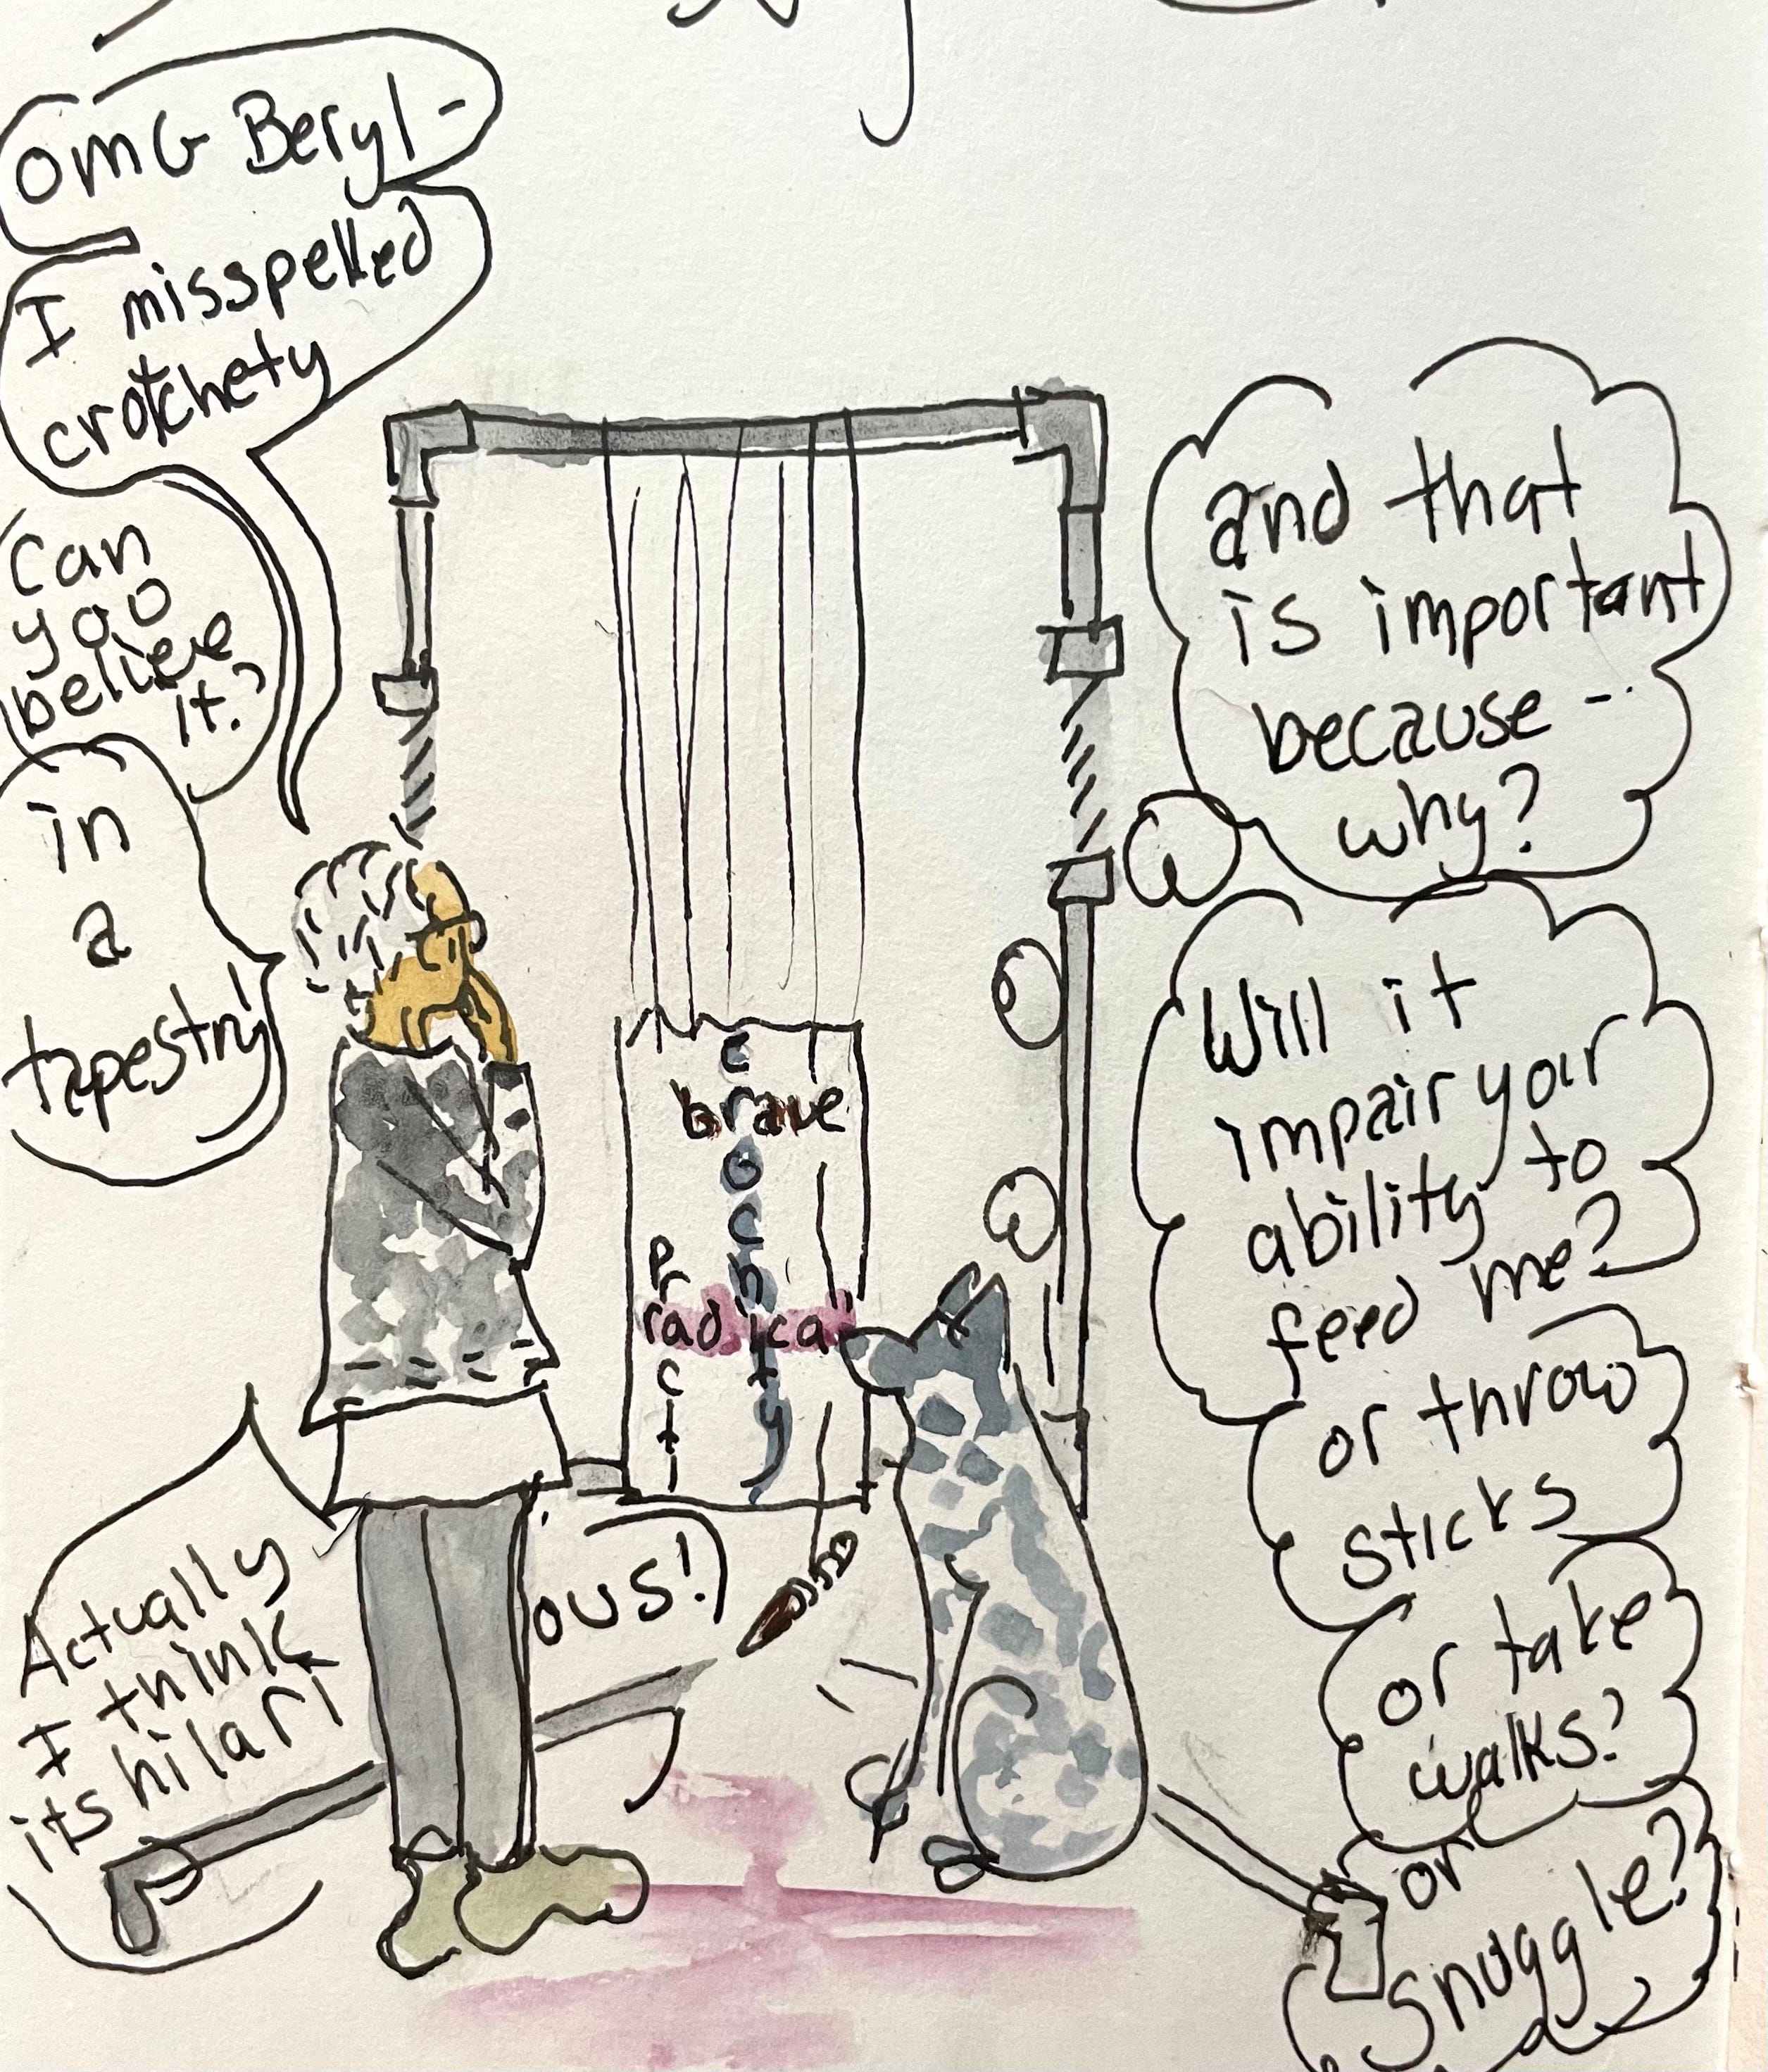 omG Beryl -
I misspelled
crotchety
can
you
believe
it?
in
a
tapestry!
c
brave
o
c
h
P
r
radical
c
t
i
t
y
and that
is important
because --
why?
Will it
impair your
ability to
feed me?
or throw
sticks
or take
walks?
or
snuggle?
Actually
I think
its hilari
ous!